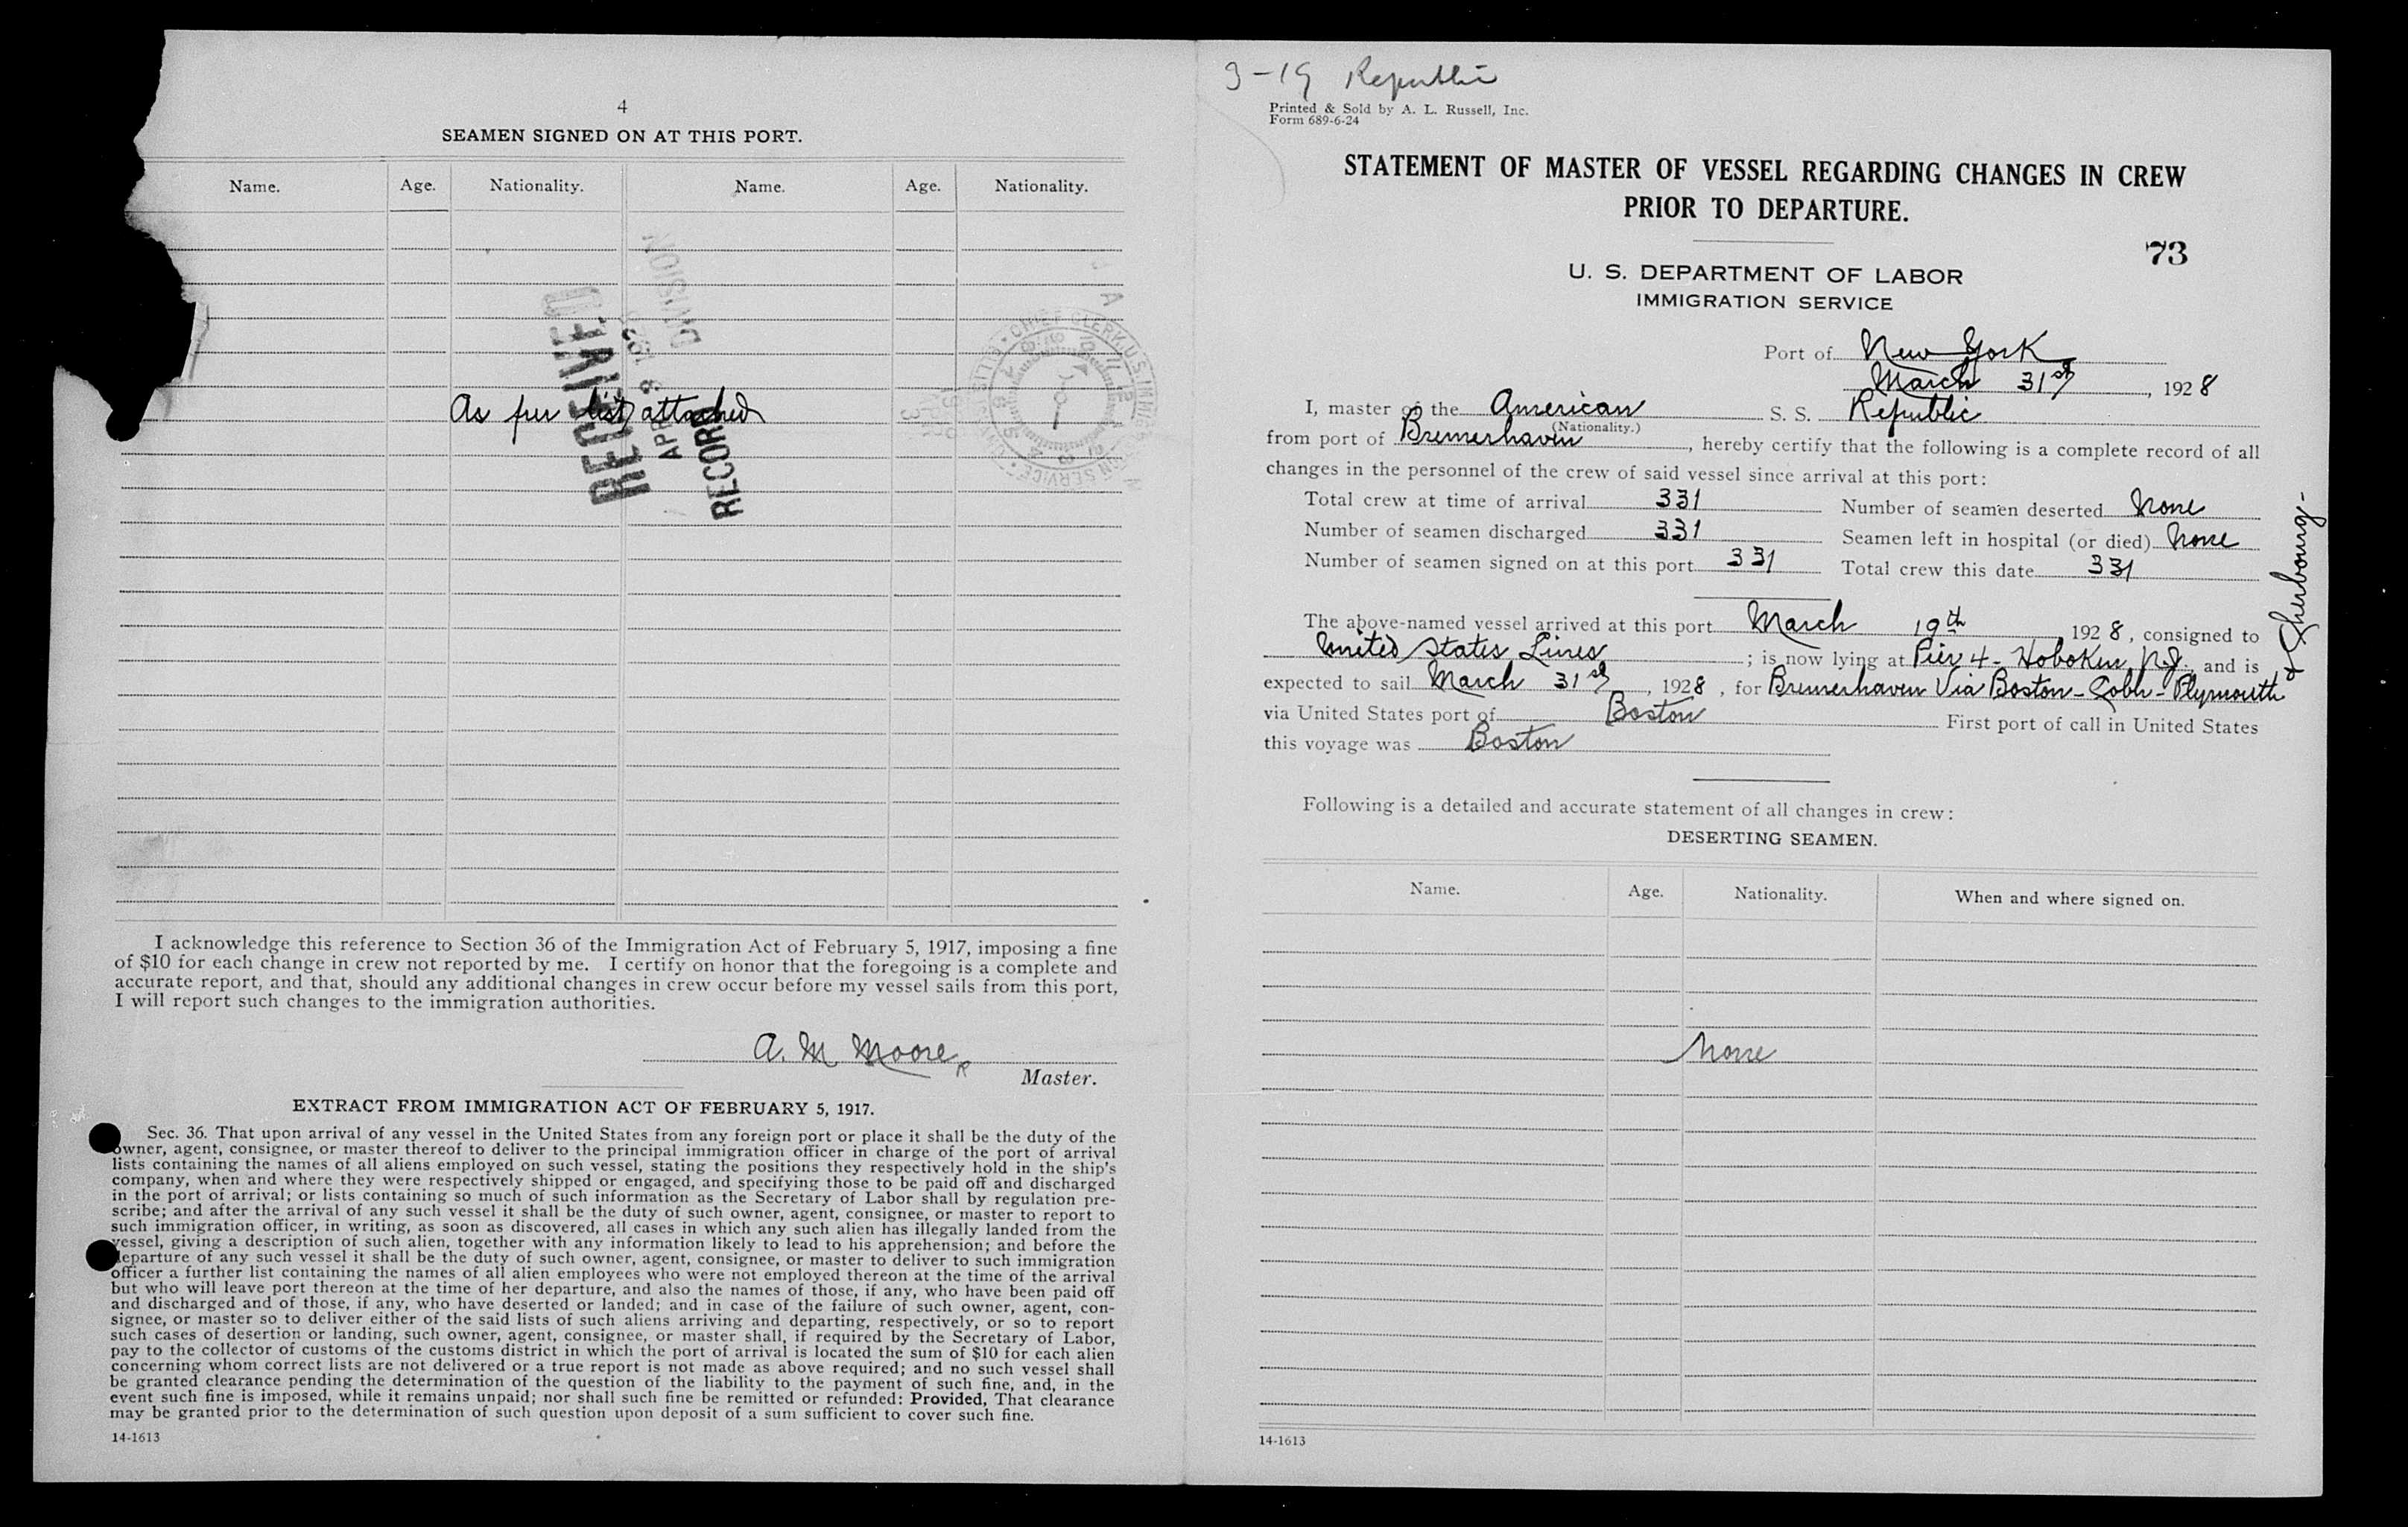 4
SEAMEN SIGNED ON AT THIS PORT.
Name. Age. Nationality. Name. Age. Nationality.
As per list attached
RECEIVED
APR 3 192
RECORD DIVISION
CHIEF CLERK, U.S. IMMIGRATION SERVICE
I acknowledge this reference to Section 36 of the Immigration Act of February 5, 1917, imposing a fine
of $10 for each change in crew not reported by me. I certify on honor that the foregoing is a complete and
accurate report, and that, should any additional changes in crew occur before my vessel sails from this port,
I will report such changes to the immigration authorities.
A. M Moore
Master.
EXTRACT FROM IMMIGRATION ACT OF FEBRUARY 5, 1917.
Sec. 36. That upon arrival of any vessel in the United States from any foreign port or place it shall be the duty of the
owner, agent, consignee, or master thereof to deliver to the principal immigration officer in charge of the port of arrival
lists containing the names of all aliens employed on such vessel, stating the positions they respectively hold in the ship's
company, when and where they were respectively shipped or engaged, and specifying those to be paid off and discharged
in the port of arrival; or lists containing so much of such information as the Secretary of Labor shall by regulation pre-
scribe; and after the arrival of any such vessel it shall be the duty of such owner, agent, consignee, or master to report to
such immigration officer, in writing, as soon as discovered, all cases in which any such alien has illegally landed from the
vessel, giving a description of such alien, together with any information likely to lead to his apprehension; and before the
departure of any such vessel it shall be the duty of such owner, agent, consignee, or master to deliver to such immigration
officer a further list containing the names of all alien employees who were not employed thereon at the time of the arrival
but who will leave port thereon at the time of her departure, and also the names of those, if any, who have been paid off
and discharged and of those, if any, who have deserted or landed; and in case of the failure of such owner, agent, con-
signee, or master so to deliver either of the said lists of such aliens arriving and departing, respectively, or so to report
such cases of desertion or landing, such owner, agent, consignee, or master shall, if required by the Secretary of Labor,
pay to the collector of customs of the customs district in which the port of arrival is located the sum of $10 for each alien
concerning whom correct lists are not delivered or a true report is not made as above required; and no such vessel shall
be granted clearance pending the determination of the question of the liability to the payment of such fine, and, in the
event such fine is imposed, while it remains unpaid; nor shall such fine be remitted or refunded: Provided, That clearance
may be granted prior to the determination of such question upon deposit of a sum sufficient to cover such fine.
14-1613
3-19 Republic
Printed & Sold by A. L. Russell, Inc.
Form 689-6-24
STATEMENT OF MASTER OF VESSEL REGARDING CHANGES IN CREW
PRIOR TO DEPARTURE.
73
U. S. DEPARTMENT OF LABOR
IMMIGRATION SERVICE
Port of New York
March 31st, 1928
I, master of the American S. S. Republic
(Nationality.)
from port of Bremerhaven, hereby certify that the following is a complete record of all
changes in the personnel of the crew of said vessel since arrival at this port:
Total crew at time of arrival 331 Number of seamen deserted None
Number of seamen discharged 331 Seamen left in hospital (or died) None
Number of seamen signed on at this port 331 Total crew this date 331
The above-named vessel arrived at this port March 19th 1928, consigned to
United States Lines; is now lying at Pier 4 - Hoboken, N.J. and is
expected to sail March 31st, 1928, for Bremerhaven Via Boston - Cobh - Plymouth
& Sherbourg -
via United States port of Boston First port of call in United States
this voyage was Boston
Following is a detailed and accurate statement of all changes in crew:
DESERTING SEAMEN.
Name. Age. Nationality. When and where signed on.
None
14-1613